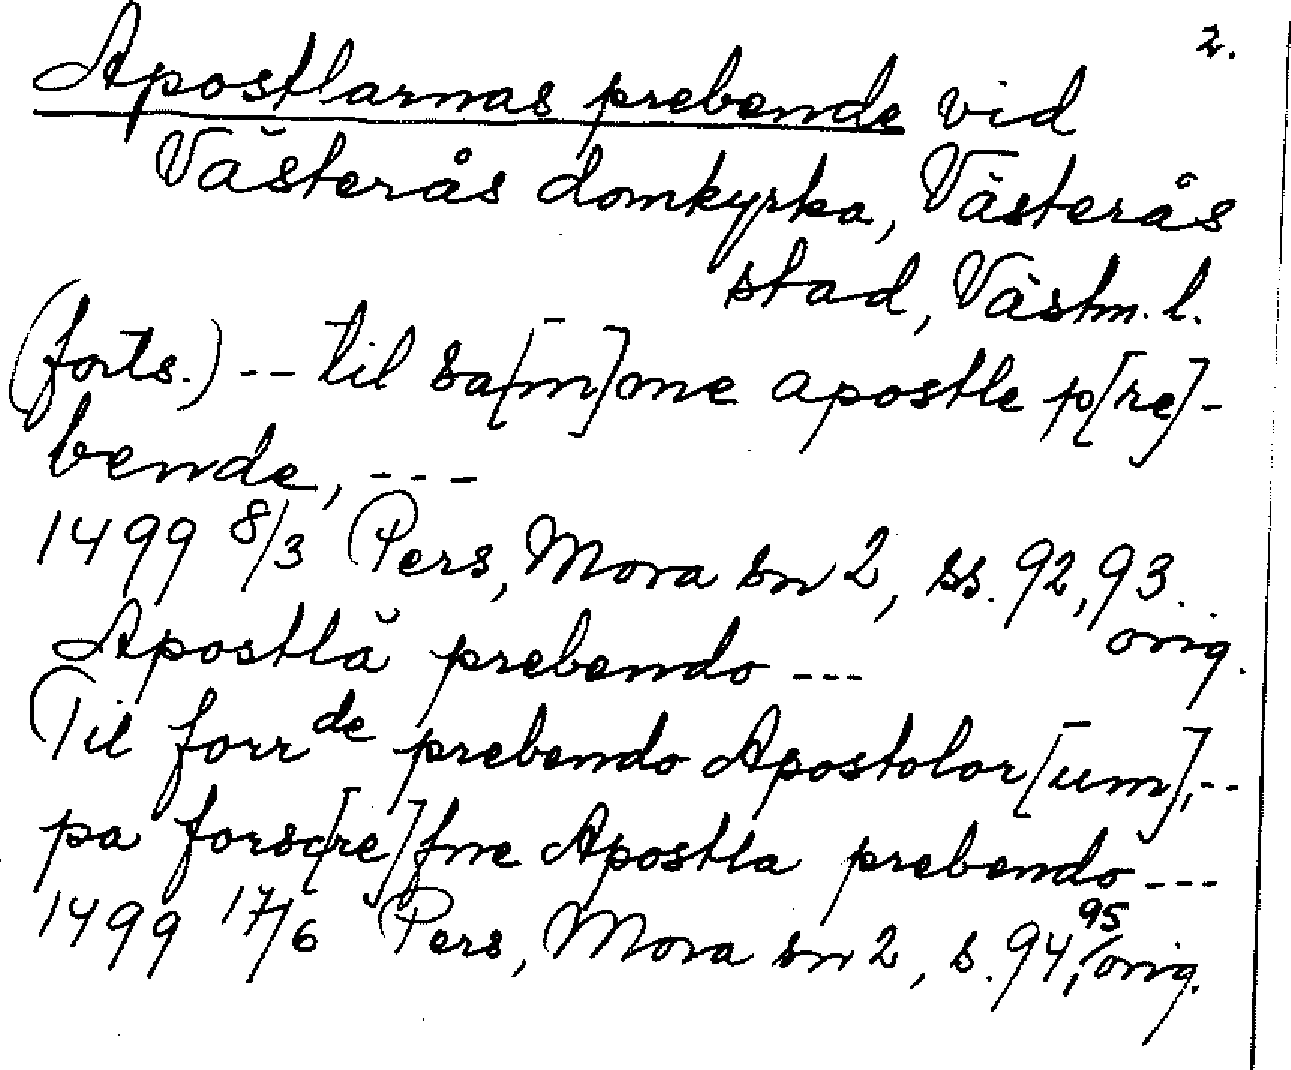 2.
Apostlarnas prebende vid
Västerås domkyrka, Västerås
stad, Västm. l.
(forts.) -- til sa[m]me apostle p[re]-
bende, ---
1499 8/3 Pers, Mora sn 2, ss. 92, 93.
orig.
Apostlå prebendo ---
Til forrde prebendo Apostolor[um], --
pa forsc[re]fne Apostla prebendo ---
1499 17/6 Pers, Mora sn 2, s. 94, 95 orig.